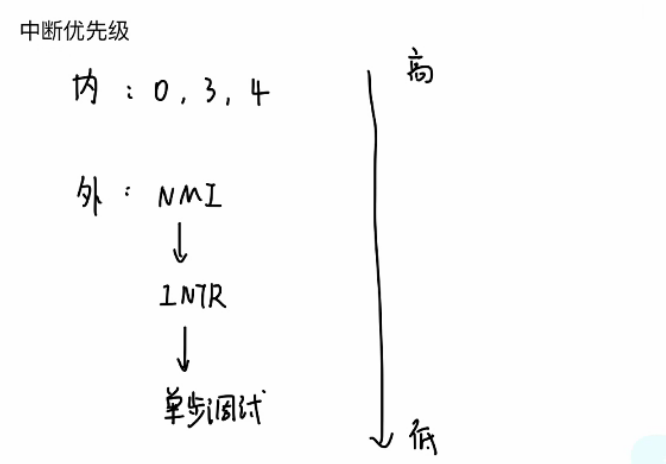 中断优先级
高
内：0，3，4
外：NMI
↓
INTR
↓
单步调试
低